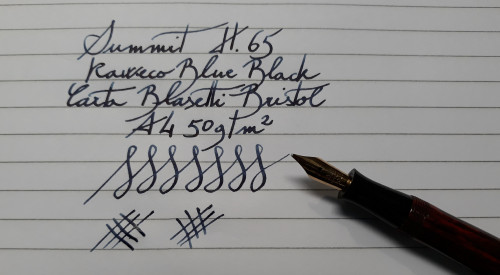 Summit H. 65
Kaweco Blue Black
Carta Blasetti Bristol
A4 50g/m²